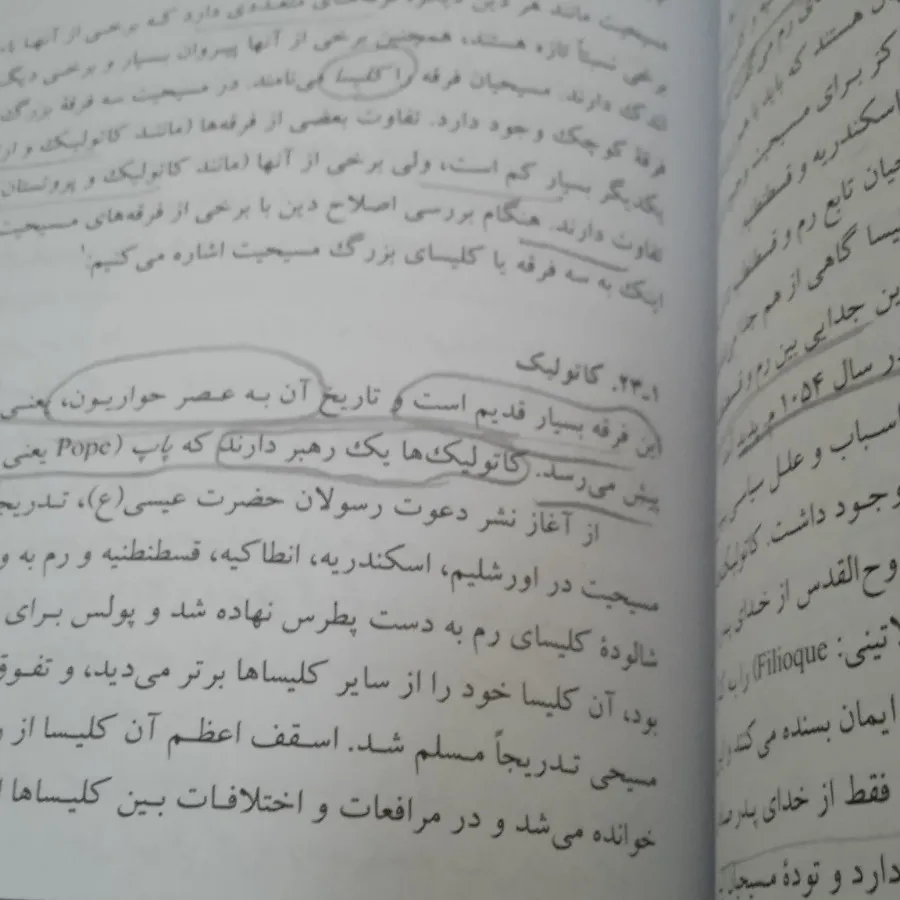 مسیحیت مانند هر دین دیگری فرقه‌های متعددی دارد که برخی از آنها
و خی نسبتاً تازه هستند، همچنین برخی از آنها پیروان بسیار و برخی دیگ
اندک دارند. مسیحیان فرقه را کلیسا می‌نامند. در مسیحیت سه فرقهٔ بزرگ
فرقهٔ کوچک وجود دارد. تفاوت بعضی از فرقه‌ها (مانند کاتولیک و ار
یکدیگر بسیار کم است، ولی برخی از آنها (مانند کاتولیک و پروتستان
تفاوت دارند. هنگام بررسی اصلاح دین با برخی از فرقه‌های مسیحیت
اینک به سه فرقه یا کلیسای بزرگ مسیحیت اشاره می‌کنیم:۱
۱ـ۲۳. کاتولیک
این فرقه بسیار قدیم است و تاریخ آن به عصر حواریون، یعنی
پیش می‌رسد. کاتولیک‌ها یک رهبر دارند که پاپ (Pope یعنی
از آغاز نشر دعوت رسولان حضرت عیسی(ع)، تدریجا
مسیحیت در اورشلیم، اسکندریه، انطاکیه، قسطنطنیه و رم به و
شالودهٔ کلیسای رم به دست پطرس نهاده شد و پولس برای
بود، آن کلیسا خود را از سایر کلیساها برتر می‌دید، و تفوق
مسیحی تدریجاً مسلم شد. اسقف اعظم آن کلیسا از
خوانده می‌شد و در مرافعات و اختلافات بین کلیساها
هستند که باید
کز برای مسیحیت
اسکندریه و قسطنط
حیان تابع رم و قسطنط
یسا گاهی از هم جدا
ین جدایی بین رم و قسط
در سال ۱۰۵۴ م.
اسباب و علل سیاسی
وجود داشت. کاتولیک
وح‌القدس از خدای
لاتینی: Filioque) را به
ایمان بسنده می‌کنند
فقط از خدای پدر
دارد و تودهٔ مسیحیا